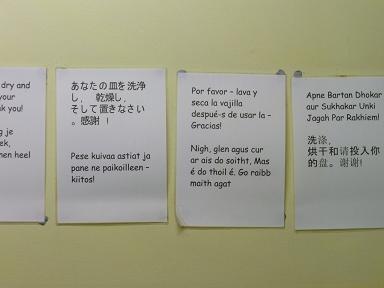 dry and
your
k you!
g je
ek,
nen heel
あなたの皿を洗浄
し, 乾燥し,
そして置きなさい
。感謝 !
Pese kuivaa astiat ja
pane ne paikoilleen –
kiitos!
Por favor – lava y
seca la vajilla
despué-s de usar la –
Gracias!
Nigh, glen agus cur
ar ais do soitht, Mas
é do thoil é. Go raibb
maith agat
Apne Bartan Dhokar
aur Sukhakar Unki
Jagah Par Rakhiem!
洗涤,
烘干和请投入你
的盘。谢谢!